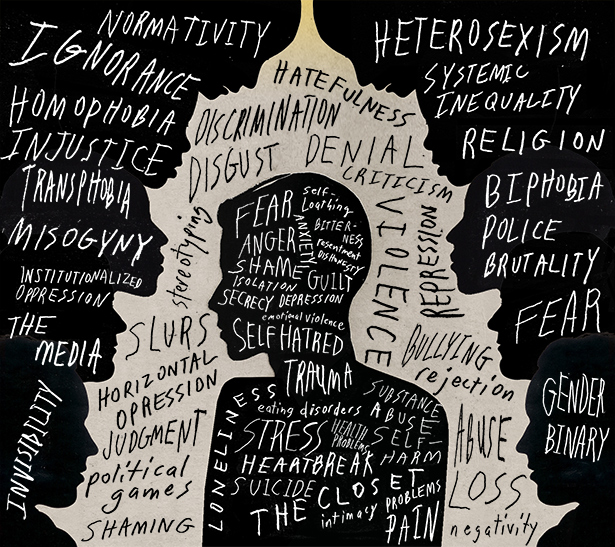 NORMATIVITY
IGNORANCE
HOMOPHOBIA
INJUSTICE
TRANSPHOBIA
MISOGYNY
INSTITUTIONALIZED
OPPRESSION
THE
MEDIA
INVISIBILITY
HATEFULNESS
DISCRIMINATION
DISGUST
DENIAL
CRITICISM
stereotyping
VIOLENCE
REPRESSION
SLURS
HORIZONTAL
OPRESSION
JUDGMENT
political
games
SHAMING
BULLYING
rejection
ABUSE
LOSS
negativity
HETEROSEXISM
SYSTEMIC
INEQUALITY
RELIGION
BIPHOBIA
POLICE
BRUTALITY
FEAR
GENDER
BINARY
FEAR
self-
Loathing
ANXIETY
BITTER-
NESS
ANGER
resentment
DISHONESTY
SHAME
GUILT
ISOLATION
SECRECY DEPRESSION
emotional violence
SELF HATRED
TRAUMA
LONELINESS
eating disorders
SUBSTANCE
ABUSE
STRESS
HEALTH
PROBLEMS
SELF-
HARM
HEARTBREAK
SUICIDE
THE CLOSET
intimacy
PROBLEMS
PAIN